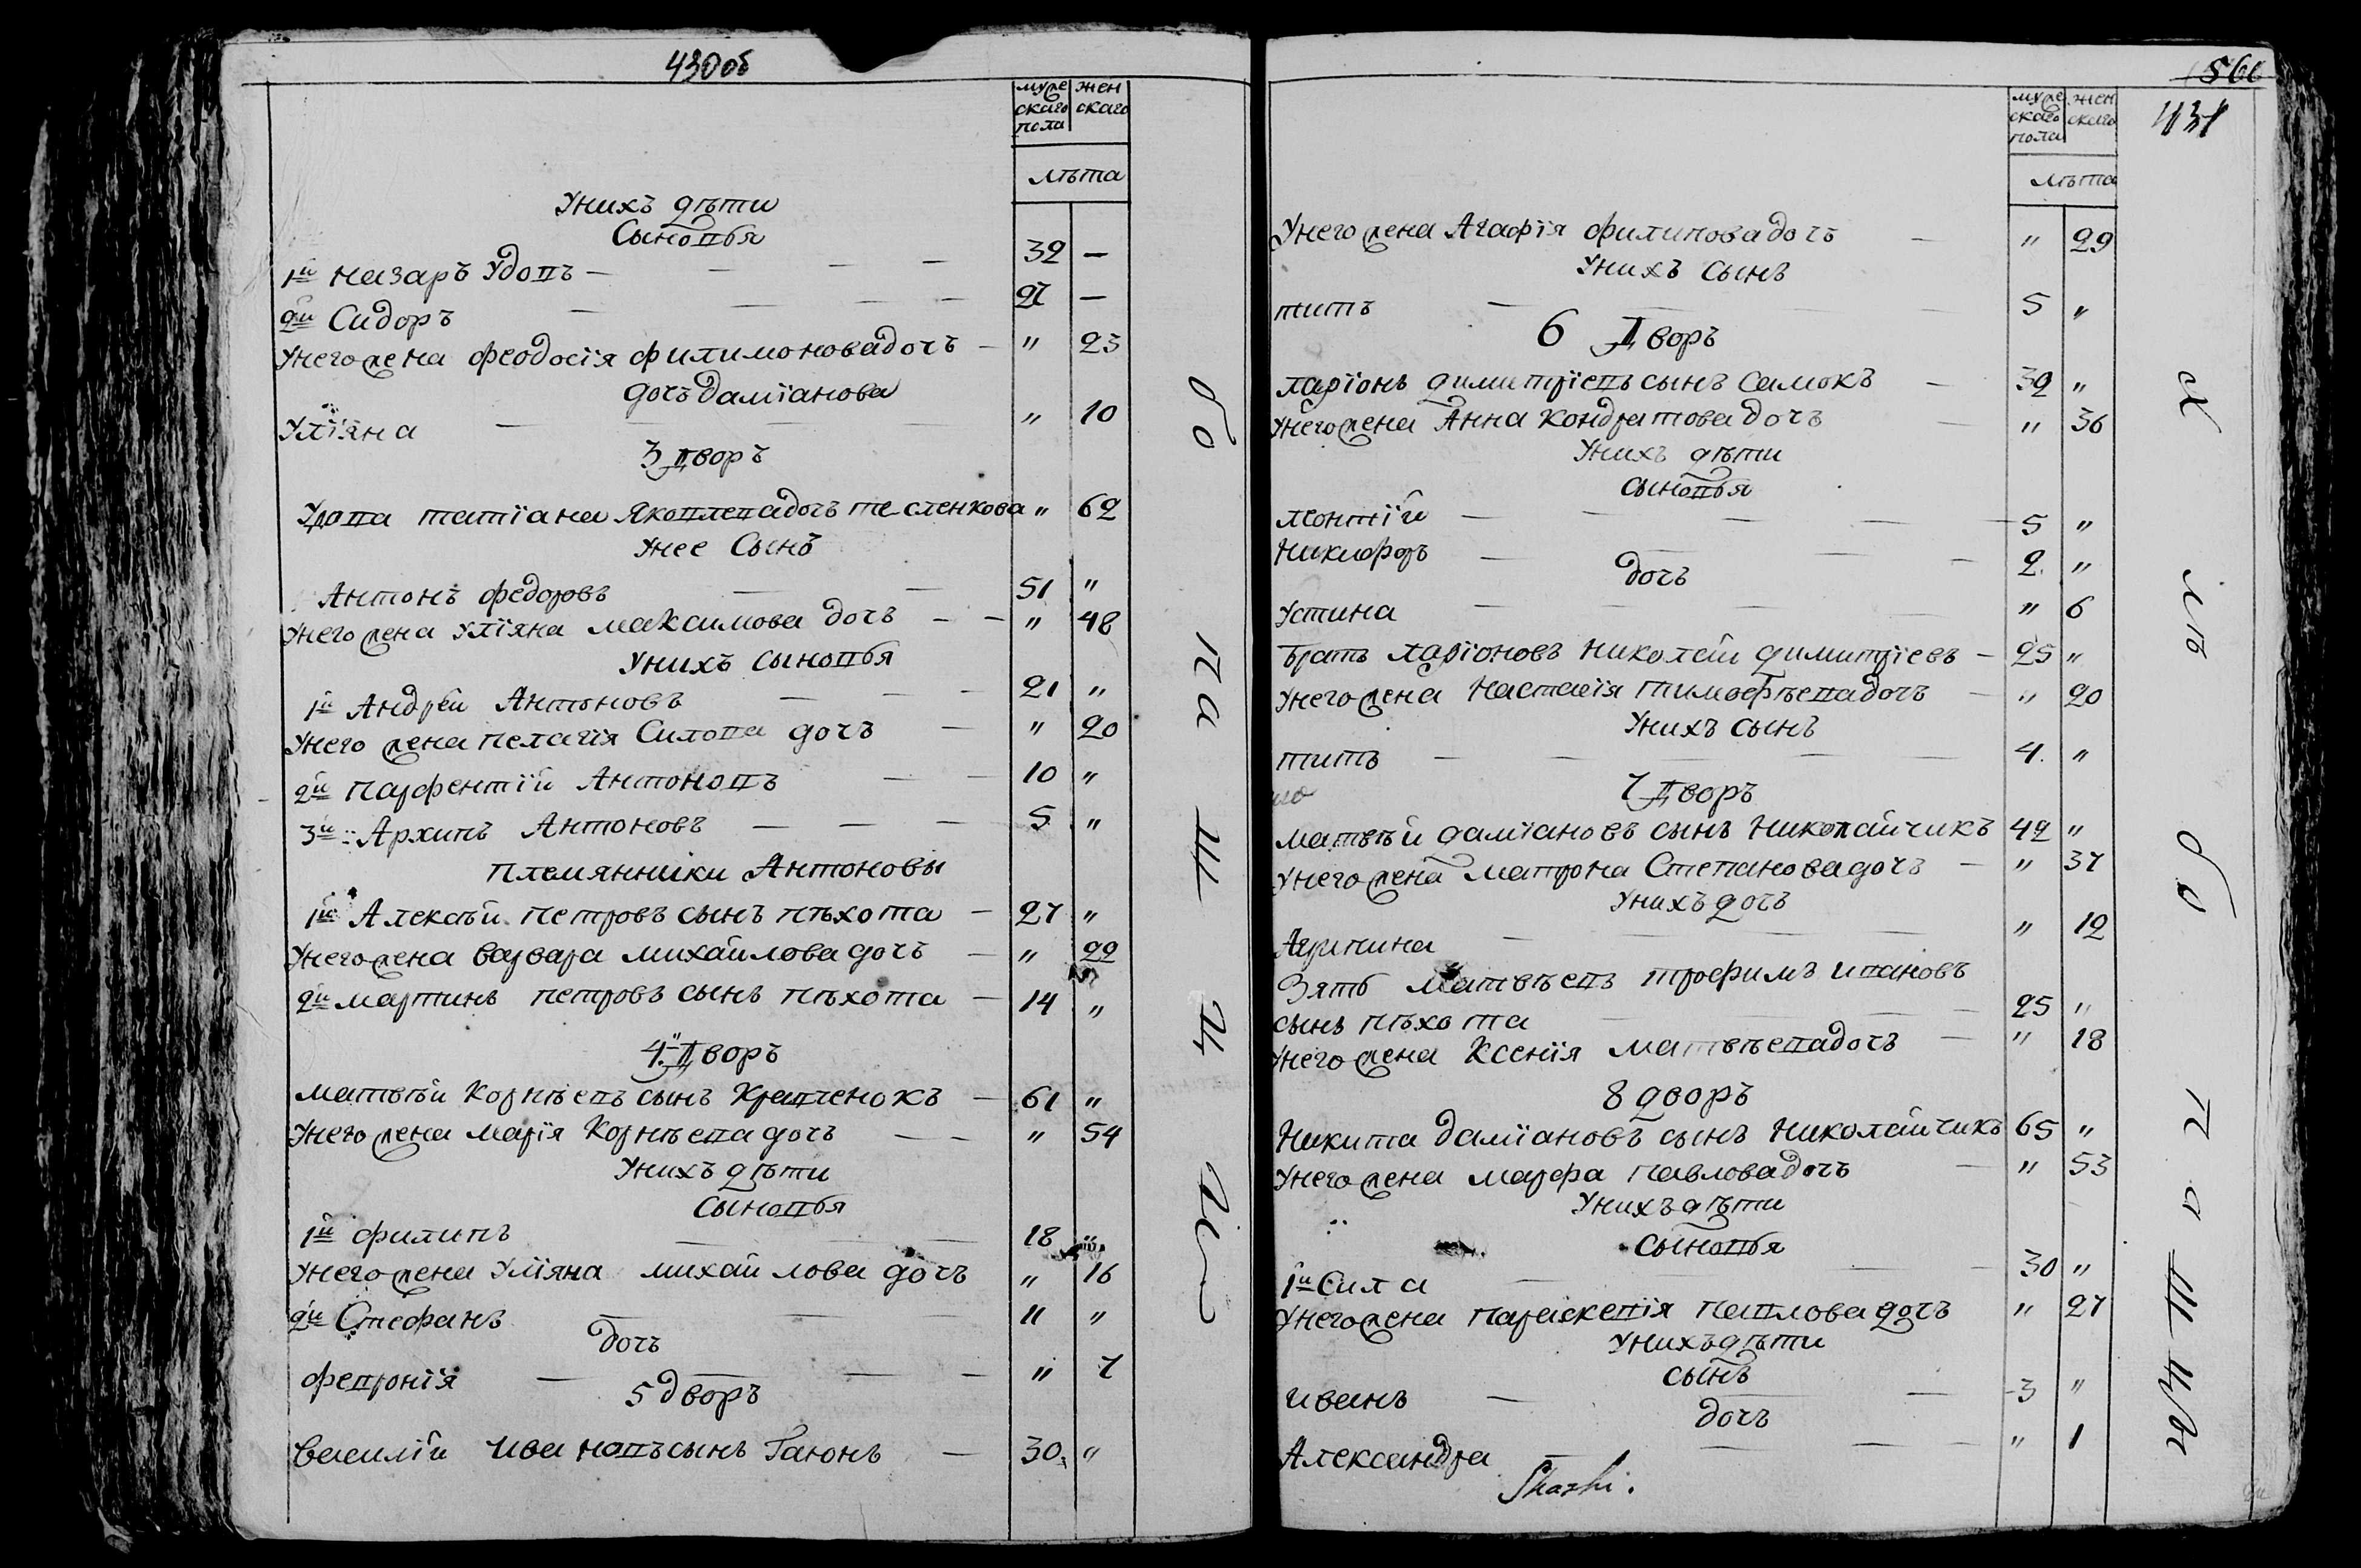 430об
мужескаго пола
женскаго
лѣта
Унихъ дѣти
Сыновья
1й Назаръ Удовъ 32 —
2й Сидоръ 27 —
Унего жена Феодосія Филимонова дочь — " 23
дочь Даміанова
Уліяна — " 10
3 Дворъ
Удова Татіана Яковлева дочь Тесленкова " 62
Унее Сынъ
Антонъ Федоровъ 51 "
Унего жена Уліяна Максимова дочь — " 48
Унихъ Сыновья
1й Андрей Антоновъ 21 "
Унего жена Пелагія Силова дочь — " 20
2й Парфентій Антоновъ 10 "
3й Архипъ Антоновъ — 5 "
Племянники Антоновы
1й Алексѣй Петровъ сынъ Пѣхота — 27 "
Унего жена Варвара Михайлова дочь — " 22
2й Мартинъ Петровъ сынъ Пѣхота — 14 "
4й Дворъ
Матвѣй Корнѣевъ сынъ Кравченокъ — 61 "
Унего жена Марія Корнѣева дочь — " 54
Унихъ дѣти
Сыновья
1й Филипъ — 18 "
Унего жена Уліяна Михайлова дочь " 16
2й Стефанъ — 11 "
дочь
Феvронія — " 7
5 дворъ
Василій Ивановъ сынъ Гаюнъ — 30 "
бо
па
Ш
Ц
566
431
мужескаго пола
женскаго
лѣта
Унего жена Агафія Филипова дочь — " 29
Унихъ Сынъ
Титъ — 5 "
6 Дворъ
Ларіонъ Димитріевъ сынъ Самокъ — 32 "
Унего жена Анна Кондратова дочь — " 36
Унихъ дѣти
сыновья
Леонтій — 5 "
Никифоръ — 2 "
дочь
Устина — " 6
Братъ Ларіоновъ Николай Димитріевъ — 25 "
Унего жена Настасія Тимофѣева дочь — " 20
Унихъ сынъ
Титъ — 4 "
7 Дворъ
Матвѣй Даміановъ сынъ Николайчикъ 42 "
Унего жена Матрона Степанова дочь — " 37
Унихъ дочь
Агрипина — " 12
Зять Матвѣевъ Трофимъ Ивановъ
сынъ Пѣхота — 25 "
Унего жена Ксенія Матвѣева дочь — " 18
8 дворъ
Никита Даміановъ сынъ Николайчикъ 65 "
Унего жена Марфа Павлова дочь — " 53
Унихъ дѣти
Сыновья
1й Сила — 30 "
Унего жена Параскевія Павлова дочь " 27
Унихъ дѣти
сынъ
Иванъ — 3 "
дочь
Александра — " 1
бо
па
Ш